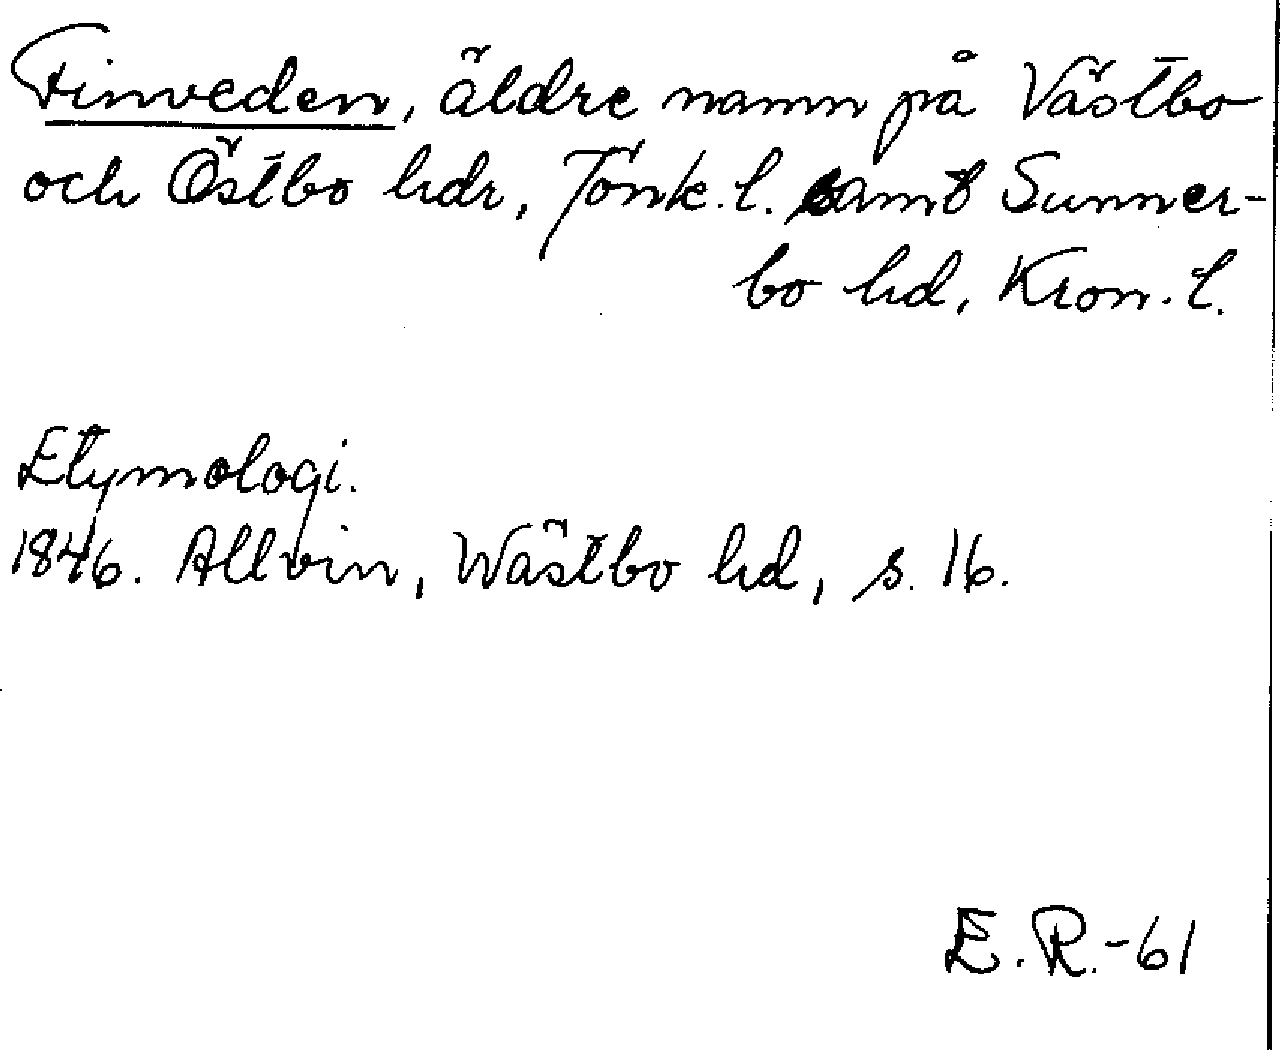 Finveden, äldre namn på Västbo
och Östbo hdr, Jönk. l. samt Sunner-
bo hd, Kron. l.
Etymologi.
1846. Allvin, Wästbo hd, s. 16.
E. R. -61